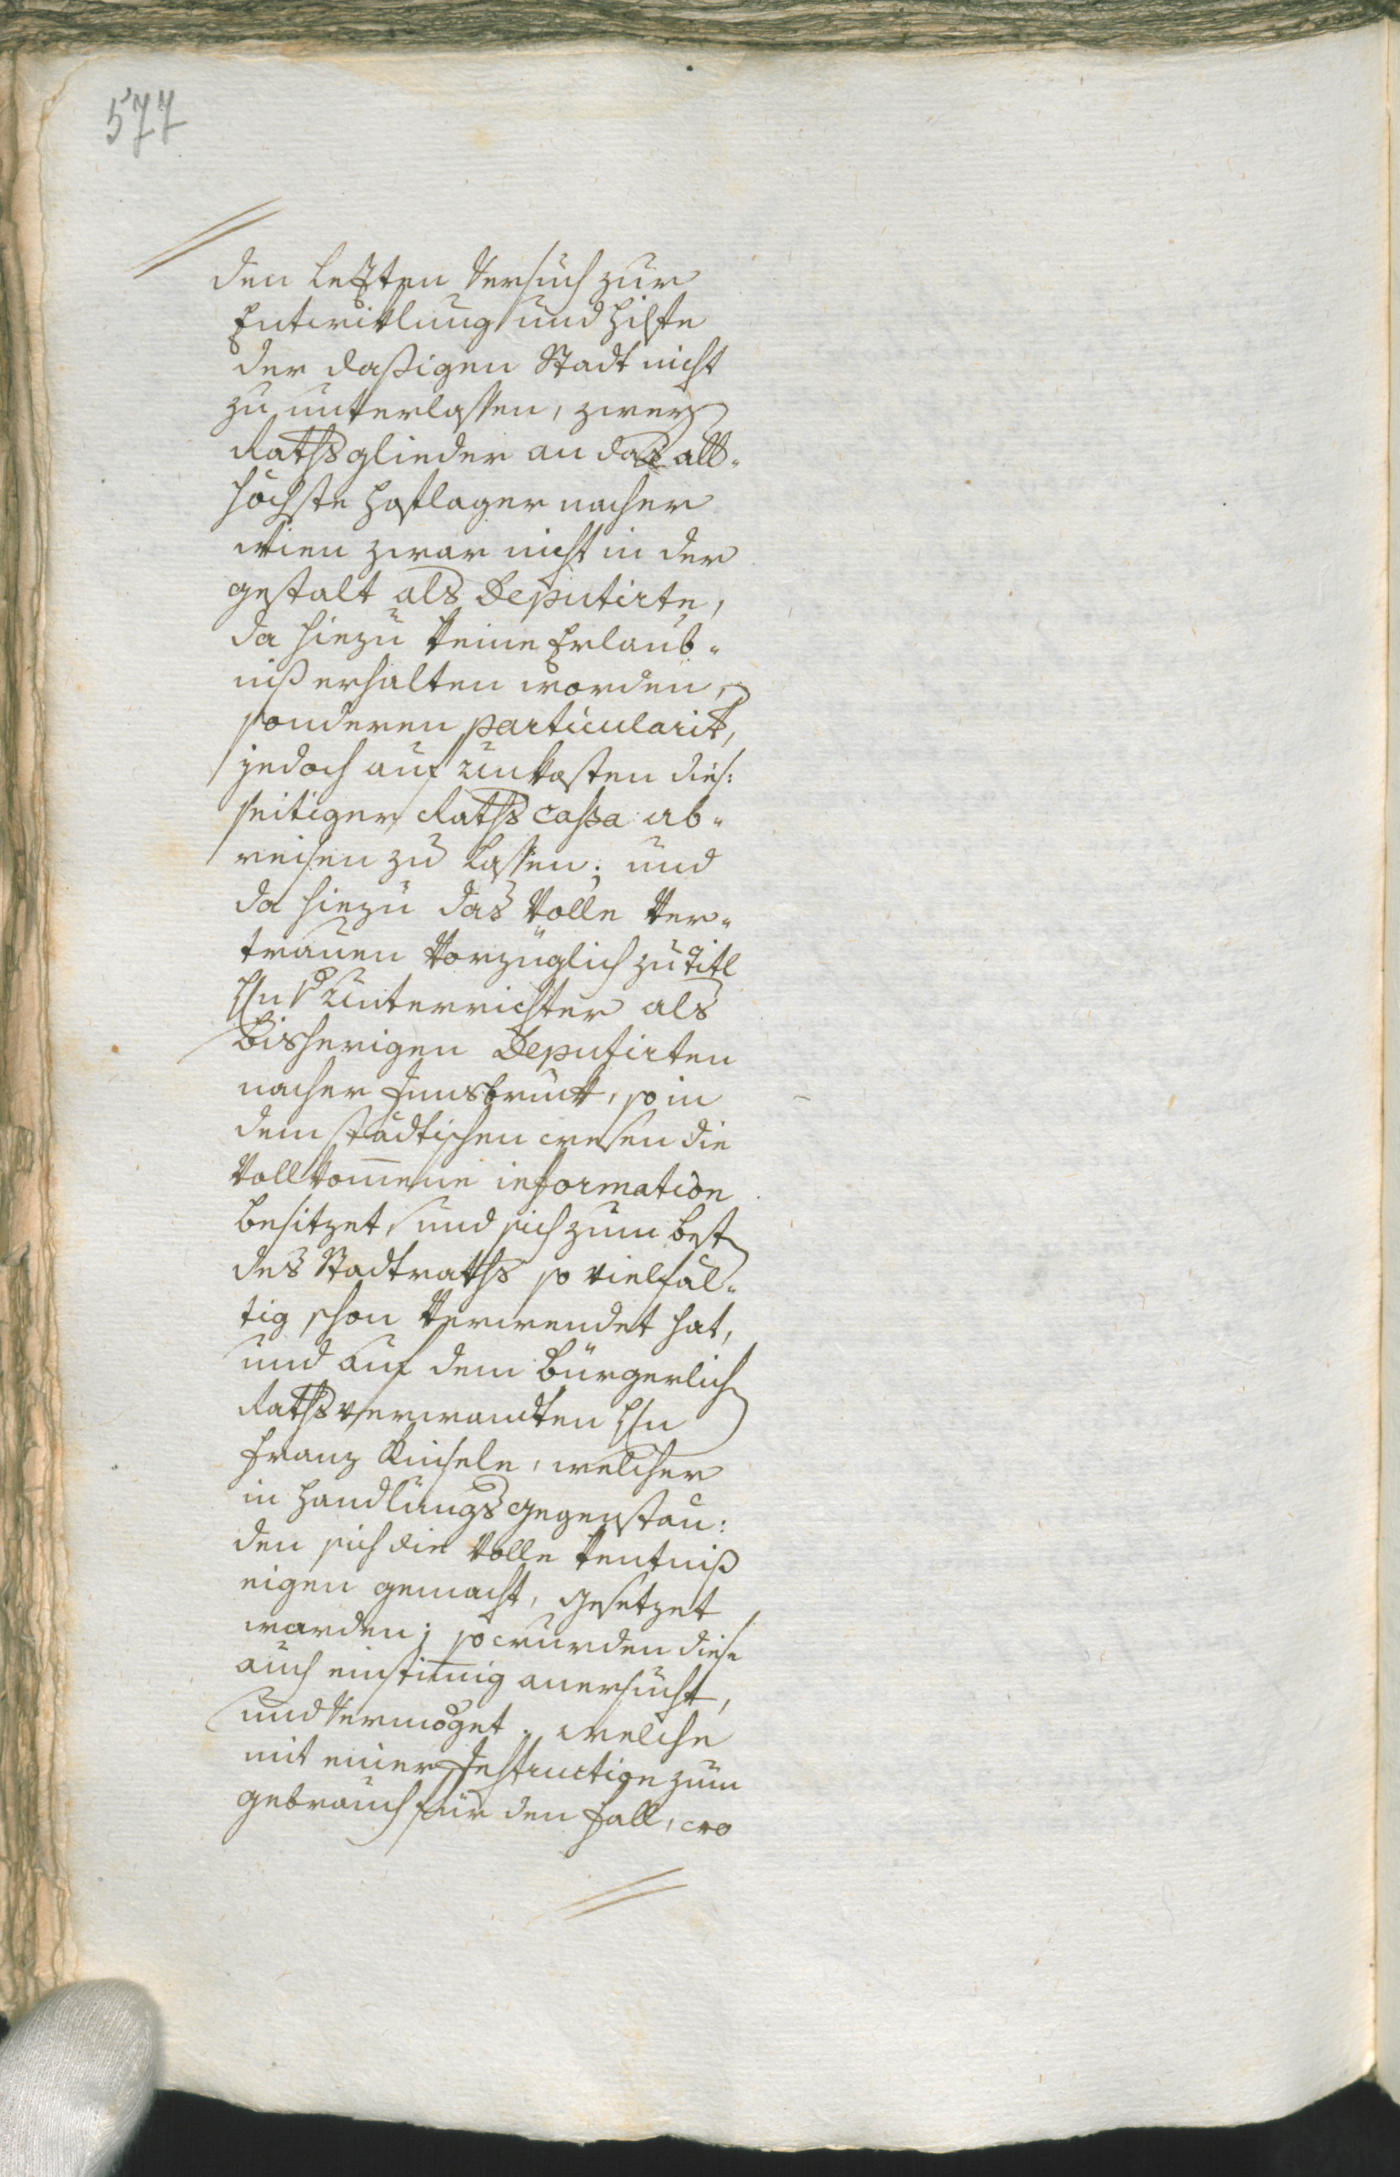 577
den letzten Versuch zur
Entwiklung und Hilfe
der dasigen Stadt nicht
zu unterlassen, zwey
Rathsglieder an das all-
höchste Hoflager nacher
Wien zwar nicht in der
gestalt als Deputirte,
da hiezu keine Erlaub-
niß erhalten worden,
sonderen particularit,
jedoch auf Unkosten dies:
seitiger Raths Cassa ab-
reisen zu lassen; und
da hiezu das volle Ver-
trauen vorzüglich zu Titl
Hn Unterrichter als
bisherigen Deputirten
nacher Innsbruck, so in
dem städtischen wesen die
vollkom̅ene information
besitzet, und sich zum best
des Stadtraths so vielfäl-
tig schon verwendet hat,
und auf dem bürgerlich
Rathsverwandten Hn
Franz Kinsele, welcher
in Handlungsgegenstän:
den sich die volle kentniß
eigen gemacht, gesetzet
worden; so wurden diese
auch einstim̅ig anersucht,
und vermöget, welche
mit einer Instruction zum
gebrauch für den fall, wo